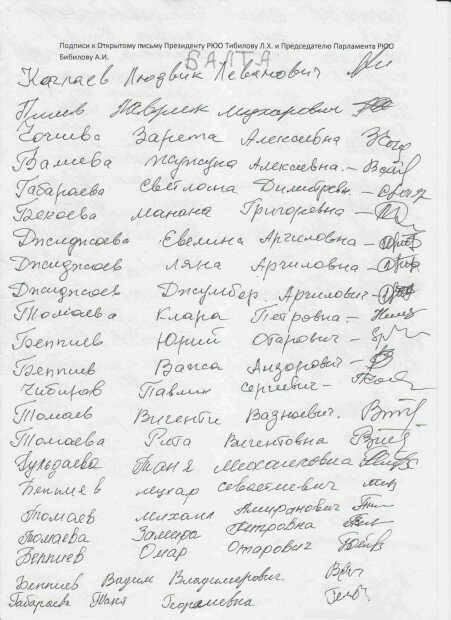 Подписи к Открытому письму Президенту РЮО Тибилову Л.Х. и Председателю Парламента РЮО
Бибилову А.И.
БАЛТА
Каглаев Людвик Леванович
Плиев Жеврик Михарович
Кочиева Зарета Алексеевна
Валиева Жужуна Алексеевна.
Габараева Светлана
Бекоева Манана Григоровна
Джиджоева Евелина Аргиловна
Джиджоев Ляна Аргиловна
Джиджоев Джумбер. Аргилович
Томаева Клара Петровна.
Беппиев Юрий Отарович
Беппиев Важа Андорович
Чибиров Павлик Сергиевич
Томаев Вигенти Вазноевич.
Томаева Рита Вигентовна
Таня
Беппиев
Томаев Михаил
Томаева Замира Петровна
Беппиев Омар Отарович
Беппиев Вадим Владимирович.
Габараева Таня Георгиевна